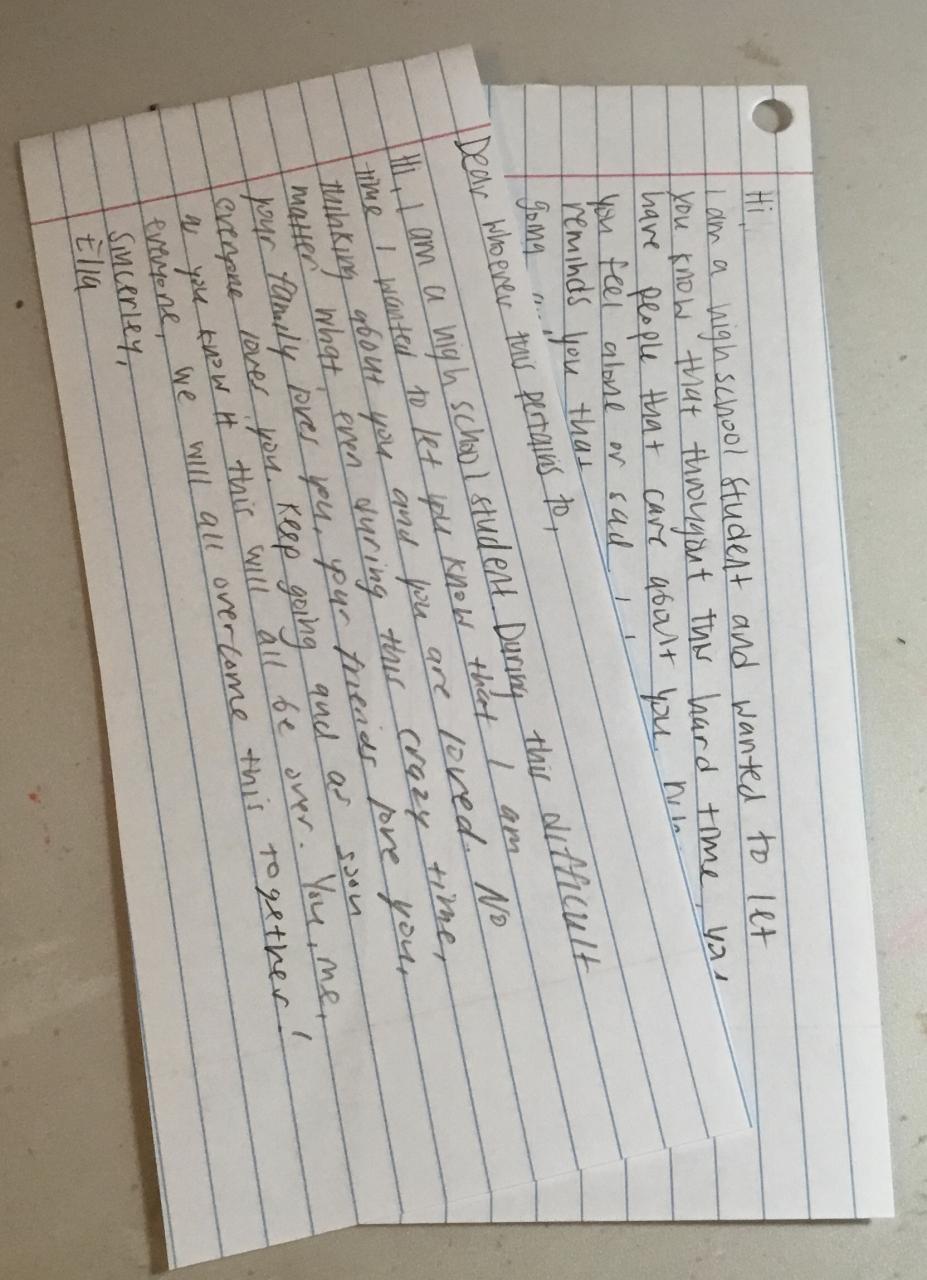 Hi,
I am a high school student and wanted to let
you know that throughout this hard time, you
have people that care about you.
you feel alone or sad
reminds you that
going
Dear whoever this pertains to,
Hi, I am a high school student. During this difficult
time I wanted to let you know that I am
thinking about you and you are loved. No
matter what, even during this crazy time,
your family loves you, your friends love you,
everyone loves you. Keep going and as soon
as you know it this will all be over. You, me,
everyone, we will all overcome this together!
Sincerley,
Ella